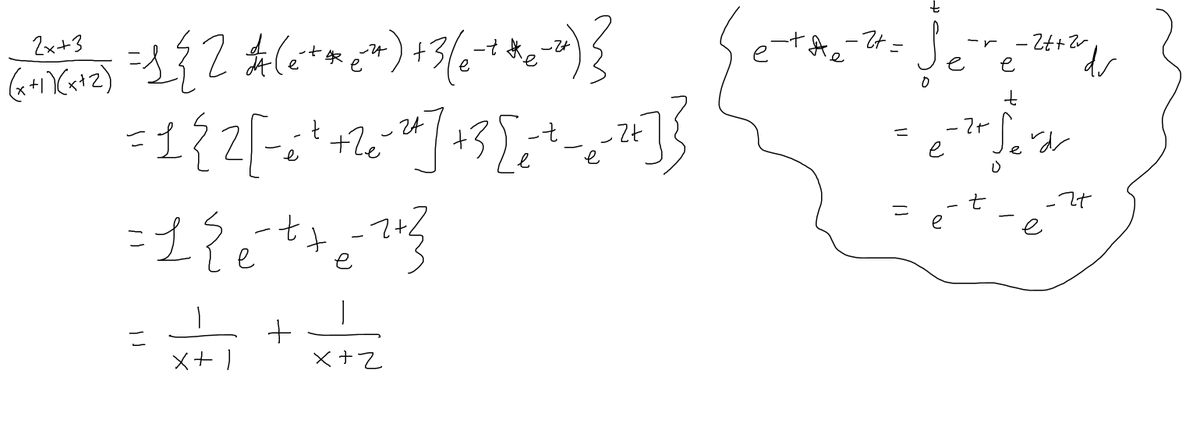 (2x+3)/((x+1)(x+2)) = ℒ{2 d/dt(e^(-t) * e^(-2t)) + 3(e^(-t) * e^(-2t))}
= ℒ{2[-e^(-t) + 2e^(-2t)] + 3[e^(-t) - e^(-2t)]}
= ℒ{e^(-t) + e^(-2t)}
= 1/(x+1) + 1/(x+2)
e^(-t) * e^(-2t) = ∫_0^t e^(-r) e^(-2t+2r) dr
= e^(-2t) ∫_0^t e^r dr
= e^(-t) - e^(-2t)